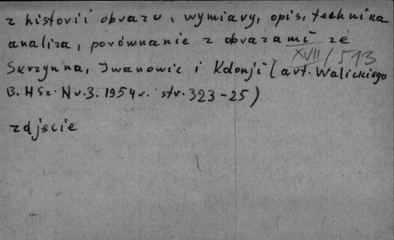 z historii obrazu, wymiary, opis, technika
analiza, porównanie z obrazami ze
XVII/513
Skrzynna, Iwanowic i Kolonji (art. Walickiego
B. HSz. Nr. 3. 1954 r. str. 323-25)
zdjęcie